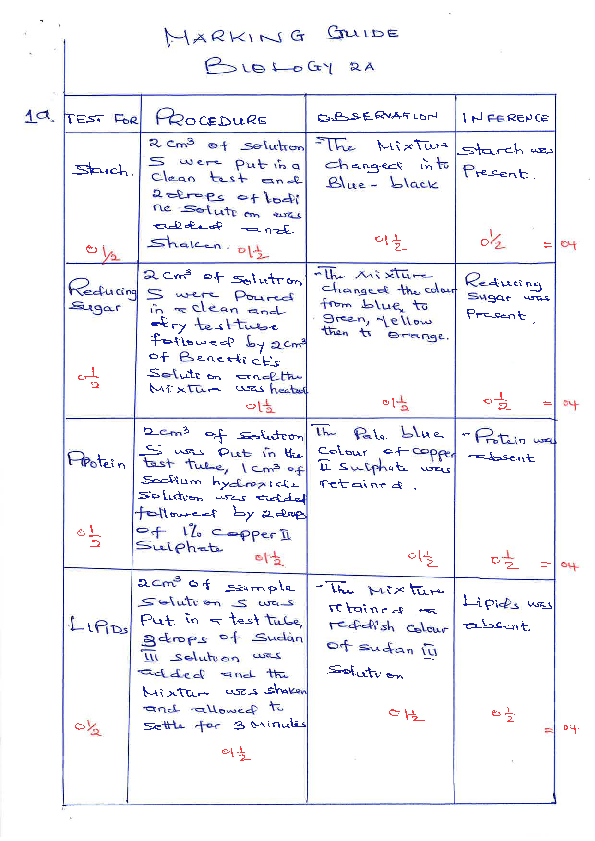 MARKING GUIDE
BIOLOGY 2A
1a. TEST FOR PROCEDURE OBSERVATION INFERENCE
Starch.
2 cm³ of solution
S were put in a
clean test and
2 drops of Iodi
ne Solution was
added and
Shaken.
-The Mixture
changed into
Blue - black
Starch was
Present.
0 1/2
01 1/2
01 1/2
0 1/2
= 04
Reducing
Sugar
2 cm³ of Solution
S were Poured
in a clean and
dry testtube
followed by 2cm³
of Benedict's
Solution and the
Mixture was heated
-The Mixture
changed the colour
from blue, to
green, Yellow
then to orange.
Reducing
Sugar was
Present.
0 1/2
01 1/2
01 1/2
0 1/2
= 04
Protein
2cm³ of solution
S was Put in the
test tube, 1cm³ of
Sodium hydroxide
Solution was added
followed by 2 drop
of 1% Copper II
Sulphate
The Pale blue
Colour of copper
II Sulphate was
retained.
- Protein was
absent
0 1/2
01 1/2
01 1/2
0 1/2
= 04
LIPIDs
2cm³ of sample
Solution S was
Put in a test tube,
3 drops of Sudan
III solution was
added and the
Mixture was shaken
and allowed to
Settle for 3 Minutes
-The Mixture
retained a
reddish colour
of sudan III
Solution
Lipids was
absent.
0 1/2
01 1/2
01 1/2
0 1/2
= 04